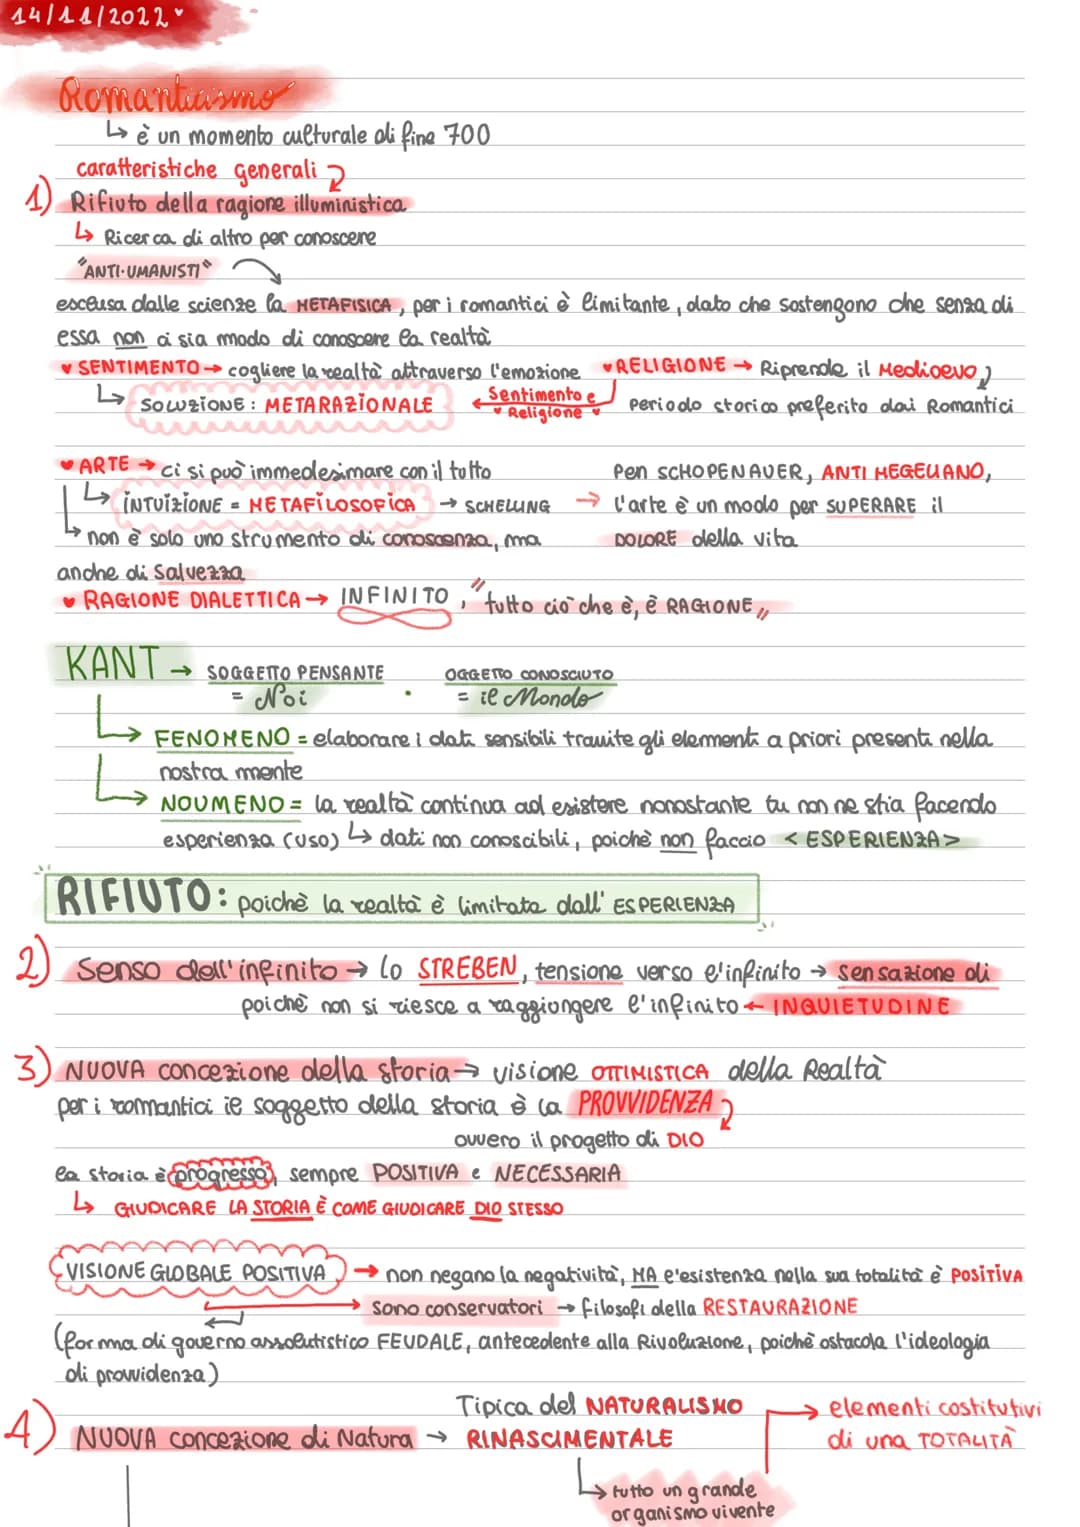 14/11/2022
Romanticismo
↳ è un momento culturale di fine 700
caratteristiche generali
1) Rifiuto della ragione illuministica
↳ Ricerca di altro per conoscere
"ANTI-UMANISTI"
esclusa dalle scienze la METAFISICA, per i romantici è limitante, dato che sostengono che senza di
essa non ci sia modo di conoscere la realtà
♥ SENTIMENTO → cogliere la realtà attraverso l'emozione ♥ RELIGIONE → Riprende il Medioevo
↳ SOLUZIONE: METARAZIONALE ← Sentimento e Periodo storico preferito dai Romantici
♥ Religione ♥
♥ ARTE → ci si può immedesimare con il tutto Per SCHOPENAUER, ANTI HEGELIANO,
↳ INTUIZIONE = METAFILOSOFICA → SCHELLING → l'arte è un modo per SUPERARE il
↳ non è solo uno strumento di conoscenza, ma DOLORE della vita
anche di Salvezza
♥ RAGIONE DIALETTICA → INFINITO, "tutto ciò che è, è RAGIONE"
KANT → SOGGETTO PENSANTE OGGETTO CONOSCIUTO
= Noi · = il Mondo
↳ FENOMENO = elaborare i dati sensibili tramite gli elementi a priori presenti nella
nostra mente
↳ NOUMENO = la realtà continua ad esistere nonostante tu non ne stia facendo
esperienza (uso) ↳ dati non conoscibili, poichè non faccio <ESPERIENZA>
RIFIUTO: poichè la realtà è limitata dall' ESPERIENZA
2) Senso dell'infinito → lo STREBEN, tensione verso l'infinito → sensazione di
poichè non si riesce a raggiungere l'infinito ← INQUIETUDINE
3) NUOVA concezione della storia → visione OTTIMISTICA della Realtà
per i romantici il soggetto della storia è la PROVVIDENZA
ovvero il progetto di DIO
la storia è progresso, sempre POSITIVA e NECESSARIA
↳ GIUDICARE LA STORIA È COME GIUDICARE DIO STESSO
VISIONE GLOBALE POSITIVA → non negano la negatività, MA l'esistenza nella sua totalità è POSITIVA
sono conservatori → filosofi della RESTAURAZIONE
(forma di governo assolutistico FEUDALE, antecedente alla Rivoluzione, poichè ostacola l'ideologia
di provvidenza)
Tipica del NATURALISMO → elementi costitutivi
4) NUOVA concezione di Natura → RINASCIMENTALE di una TOTALITÀ
↳ tutto un grande
organismo vivente